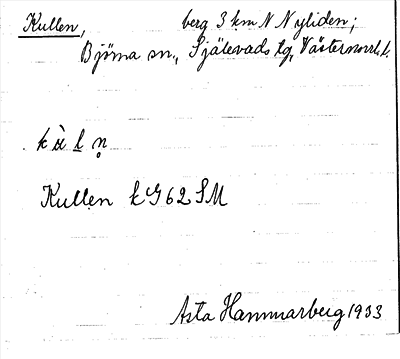 Kullen, berg 3 km N Nyliden;
Björna sn., Själevads tg, Västernorrl. l.
Kullen k G62 SM
Asta Hammarberg 1933